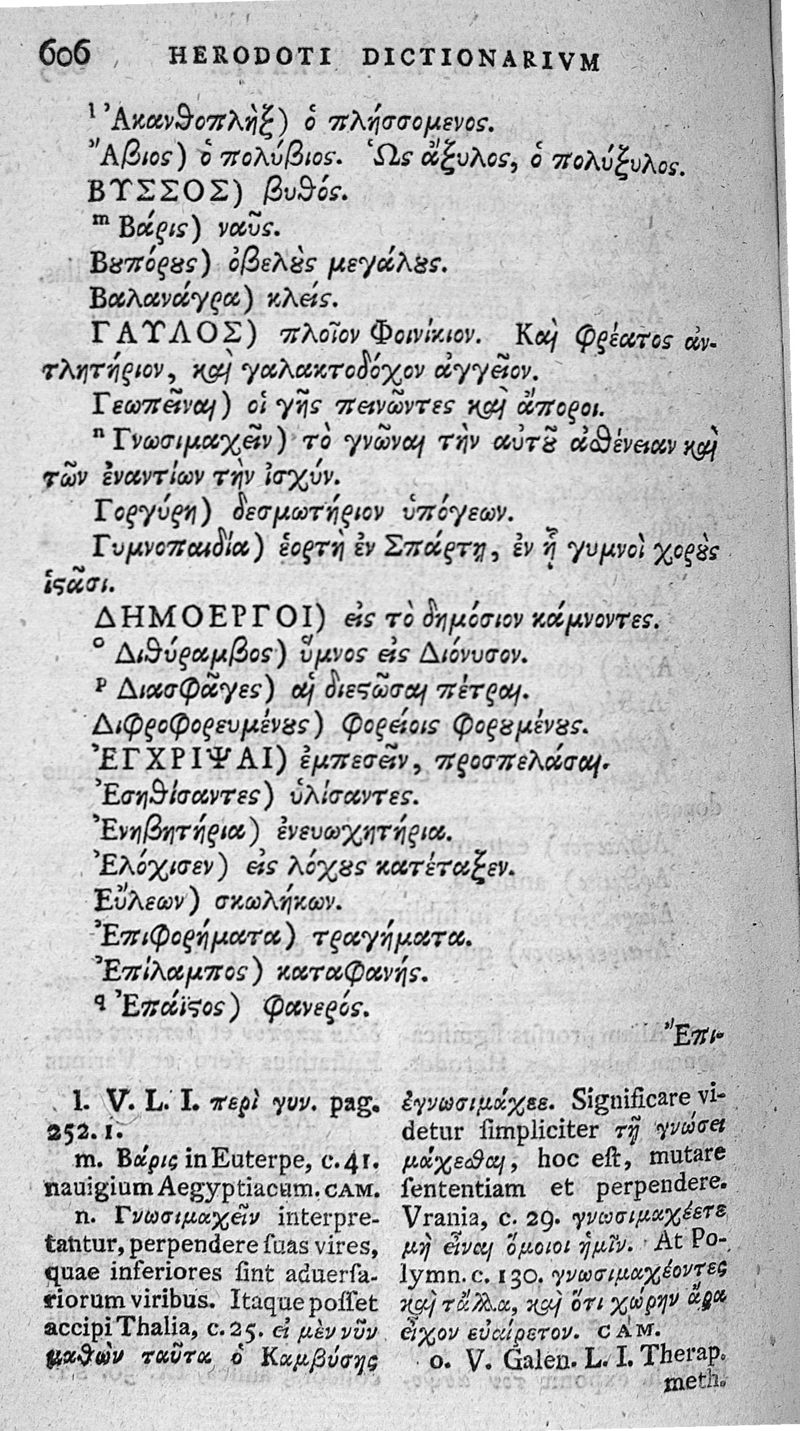 606 HERODOTI DICTIONARIVM
l Ἀκανθοπλὴξ) ὁ πλήσσομενος.
Ἄβιος) ὁ πολύβιος. Ὡς ἄξυλος, ὁ πολύξυλος.
ΒΥΣΣΟΣ) βυθός.
m Βάρις) ναῦς.
Βȣπόρȣς) ὀβελȣ̀ς μεγάλȣς.
Βαλανάγρα) κλείς.
ΓΑΥΛΟΣ) πλοῖον Φοινίκιον. Καὶ φρέατος ἀν-
τλητήριον, καὶ γαλακτοδόχον ἀγγεῖον.
Γεωπεῖναι) οἱ γῆς πεινῶντες καὶ ἄποροι.
n Γνωσιμαχεῖν) τὸ γνῶναι τὴν αὑτȣ͂ ἀσθένειαν καὶ
τῶν ἐναντίων τὴν ἰσχύν.
Γοργύρη) δεσμωτήριον ὑπόγεων.
Γυμνοπαιδία) ἑορτὴ ἐν Σπάρτῃ, ἐν ᾗ γυμνοὶ χορȣ̀ς
ἱϛᾶσι.
ΔΗΜΟΕΡΓΟΙ) εἰς τὸ δημόσιον κάμνοντες.
o Διθύραμβος) ὕμνος εἰς Διόνυσον.
p Διασφᾶγες) αἱ διεϛῶσαι πέτραι.
Διφροφορευμένȣς) φορείοις φορȣμένȣς.
ἘΓΧΡΙΨΑΙ) ἐμπεσεῖν, προσπελάσαι.
Ἐσηθίσαντες) ὑλίσαντες.
Ἐνηβητήρια) ἐνευωχητήρια.
Ἐλόχισεν) εἰς λόχȣς κατέταξεν.
Εὔλεων) σκωλήκων.
Ἐπιφορήματα) τραγήματα.
Ἐπίλαμπος) καταφανής.
q Ἐπάϊϛος) φανερός.
Ἔπι-
l. V. L. I. περὶ γυν. pag.
252. 1.
m. Βάρις in Euterpe, c. 41.
nauigium Aegyptiacum. CAM.
n. Γνωσιμαχεῖν interpre-
tantur, perpendere ſuas vires,
quae inferiores ſint aduerſa-
riorum viribus. Itaque poſſet
accipi Thalia, c. 25. εἰ μὲν νῦν
μαθὼν ταῦτα ὁ Καμβύσης
ἐγνωσιμάχεε. Significare vi-
detur ſimpliciter τῇ γνώσει
μάχεσθαι, hoc eſt, mutare
ſententiam et perpendere.
Vrania, c. 29. γνωσιμαχέετε
μὴ εἶναι ὅμοιοι ἡμῖν. At Po-
lymn. c. 130. γνωσιμαχέοντες
καὶ τἄλλα, καὶ ὅτι χώρην ἄρα
εἶχον εὐαίρετον. CAM.
o. V. Galen. L. I. Therap.
meth.